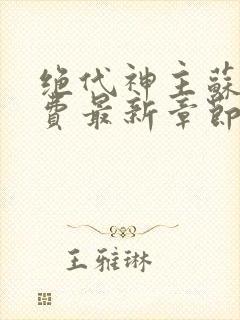 绝代神主蘇
費最新章節
王雅琳